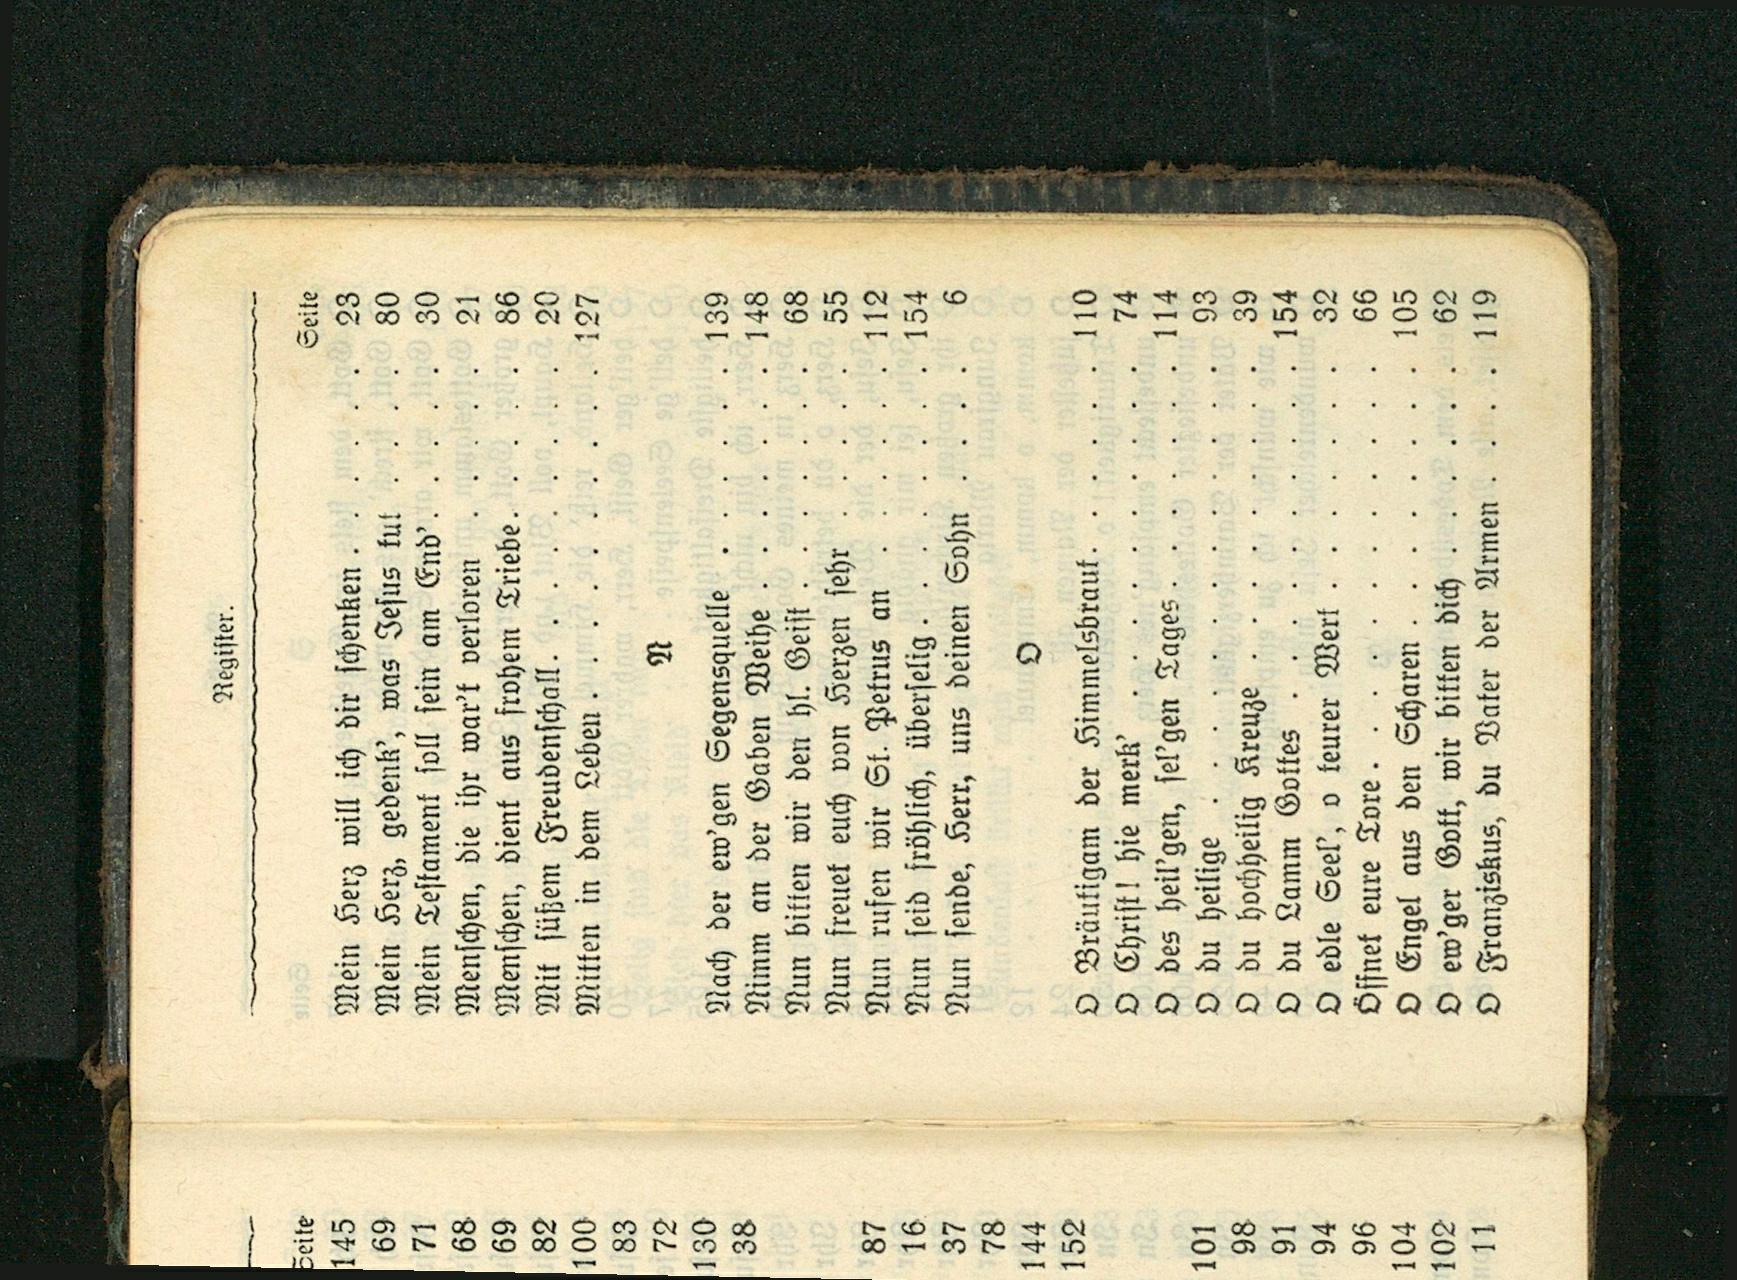 Seite
145
69
71
68
69
82
100
83
72
130
38
87
16
37
78
144
152
101
98
91
94
96
104
102
11
Register.
Seite
Mein Herz will ich dir schenken . . . . . . 23
Mein Herz, gedenk', was Jesus tut . . . . . 80
Mein Testament soll sein am End' . . . . . 30
Menschen, die ihr war't verloren . . . . . 21
Menschen, dient aus frohem Triebe . . . . . 86
Mit süßem Freudenschall . . . . . . . . 20
Mitten in dem Leben . . . . . . . . . 127
N
Nach der ew'gen Segensquelle . . . . . . 139
Nimm an der Gaben Weihe . . . . . . . 148
Nun bitten wir den hl. Geist . . . . . . . 68
Nun freuet euch von Herzen sehr . . . . . 55
Nun rufen wir St. Petrus an . . . . . . 112
Nun seid fröhlich, überselig . . . . . . . 154
Nun sende, Herr, uns deinen Sohn . . . . 6
O
O Bräutigam der Himmelsbraut . . . . . . 110
O Christ! hie merk' . . . . . . . . . 74
O des heil'gen, sel'gen Tages . . . . . . 114
O du heilige . . . . . . . . . . . 93
O du hochheilig Kreuze . . . . . . . . 39
O du Lamm Gottes . . . . . . . . . 154
O edle Seel', o teurer Wert . . . . . . . 32
Öffnet eure Tore . . . . . . . . . . 66
O Engel aus den Scharen . . . . . . . 105
O ew'ger Gott, wir bitten dich . . . . . . 62
O Franziskus, du Vater der Armen . . . . 119